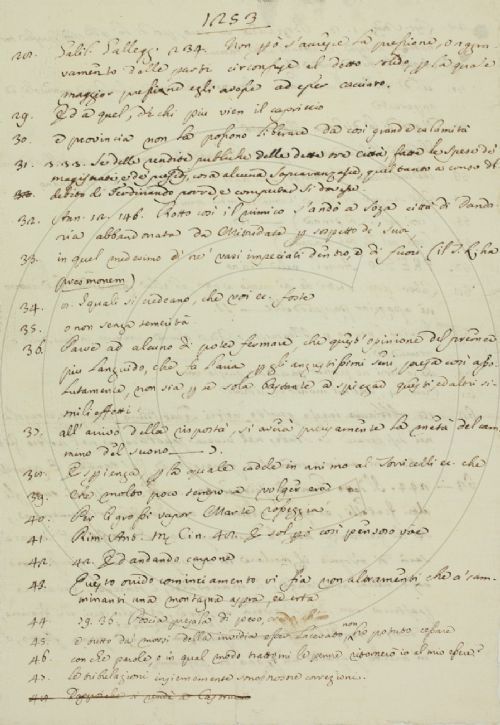 1253
28. Galil. Gallegg. 234. Non può s'avesse la pressione, o aggra
vamento delle parti circonfuse al detto solido, p la quale
maggior pressione egli avesse ad esser cacciato.
29. Ed a quel, di chi più vien il capriccio
30. e provincia non la possono liberare da così grande calamità
31. Se delle rendite pubbliche delle dette tre città, fatte le spese de
magistrati, cosa alcuna sopravanzasse, quel tanto a conto del
debito di Ferdinando porre, e computar si dovesse
32. Ann. 12. 146. Rotto così il nimico s'andò a Soza città di Danda
ria abbandonata da Mitridate p sospetto di sua
33. in quel medesimo dì ne' vasi impeciati dentro, e di fuori (il T. L. ha
34. i quali si credeano, che voi ec. foste
35. o non senza temerità
36. Parve ad alcuno di poter fermare, che quest'opinione del premere
più languido, che fa l'aria p gli angustissimi seni, presa così asso
lutamente, non sia p se sola bastante a spiegar questi ed altri si
mili effetti
37. all'arrivo della risposta, si avrà precisamente la metà del cam
mino del suono
38. Esperienza p la quale cadde in animo al Torricelli ec. che
39. Che molto poco tempo a volger era
40. Per li grossi vapor Marte rosseggia
41. Rim. Ant. M. Cin. 42. E sol p così pensoso vae
42. 42. Ed andando cagione
43. Questo orrido cominciamento vi fia non altramenti, che a' cam
minanti una montagna aspra, ed erta
44. 29. 36. Poscia presala di peso,
45. e tutto da' morsi della invidia esser lacerato non ho potuto cessare
46. con che parole, o in qual modo trattomi le penne ritornerò io al mio
47. le tribolazioni insiememente sono nostre correzioni.